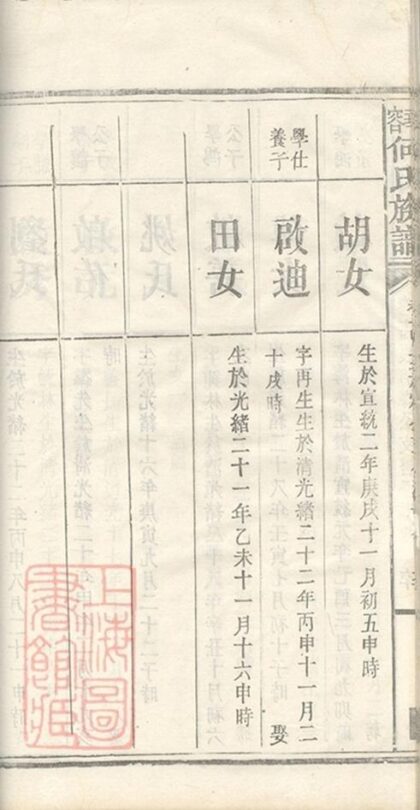 何氏族譜
胡女
生於宣統二年庚戌十一月初五申時
學仕
養子
啟迪
字再生生於清光緒二十二年丙申十一月二
十戌時
娶
田女
生於光緒二十一年乙未十一月十六申時
上海圖
書館藏